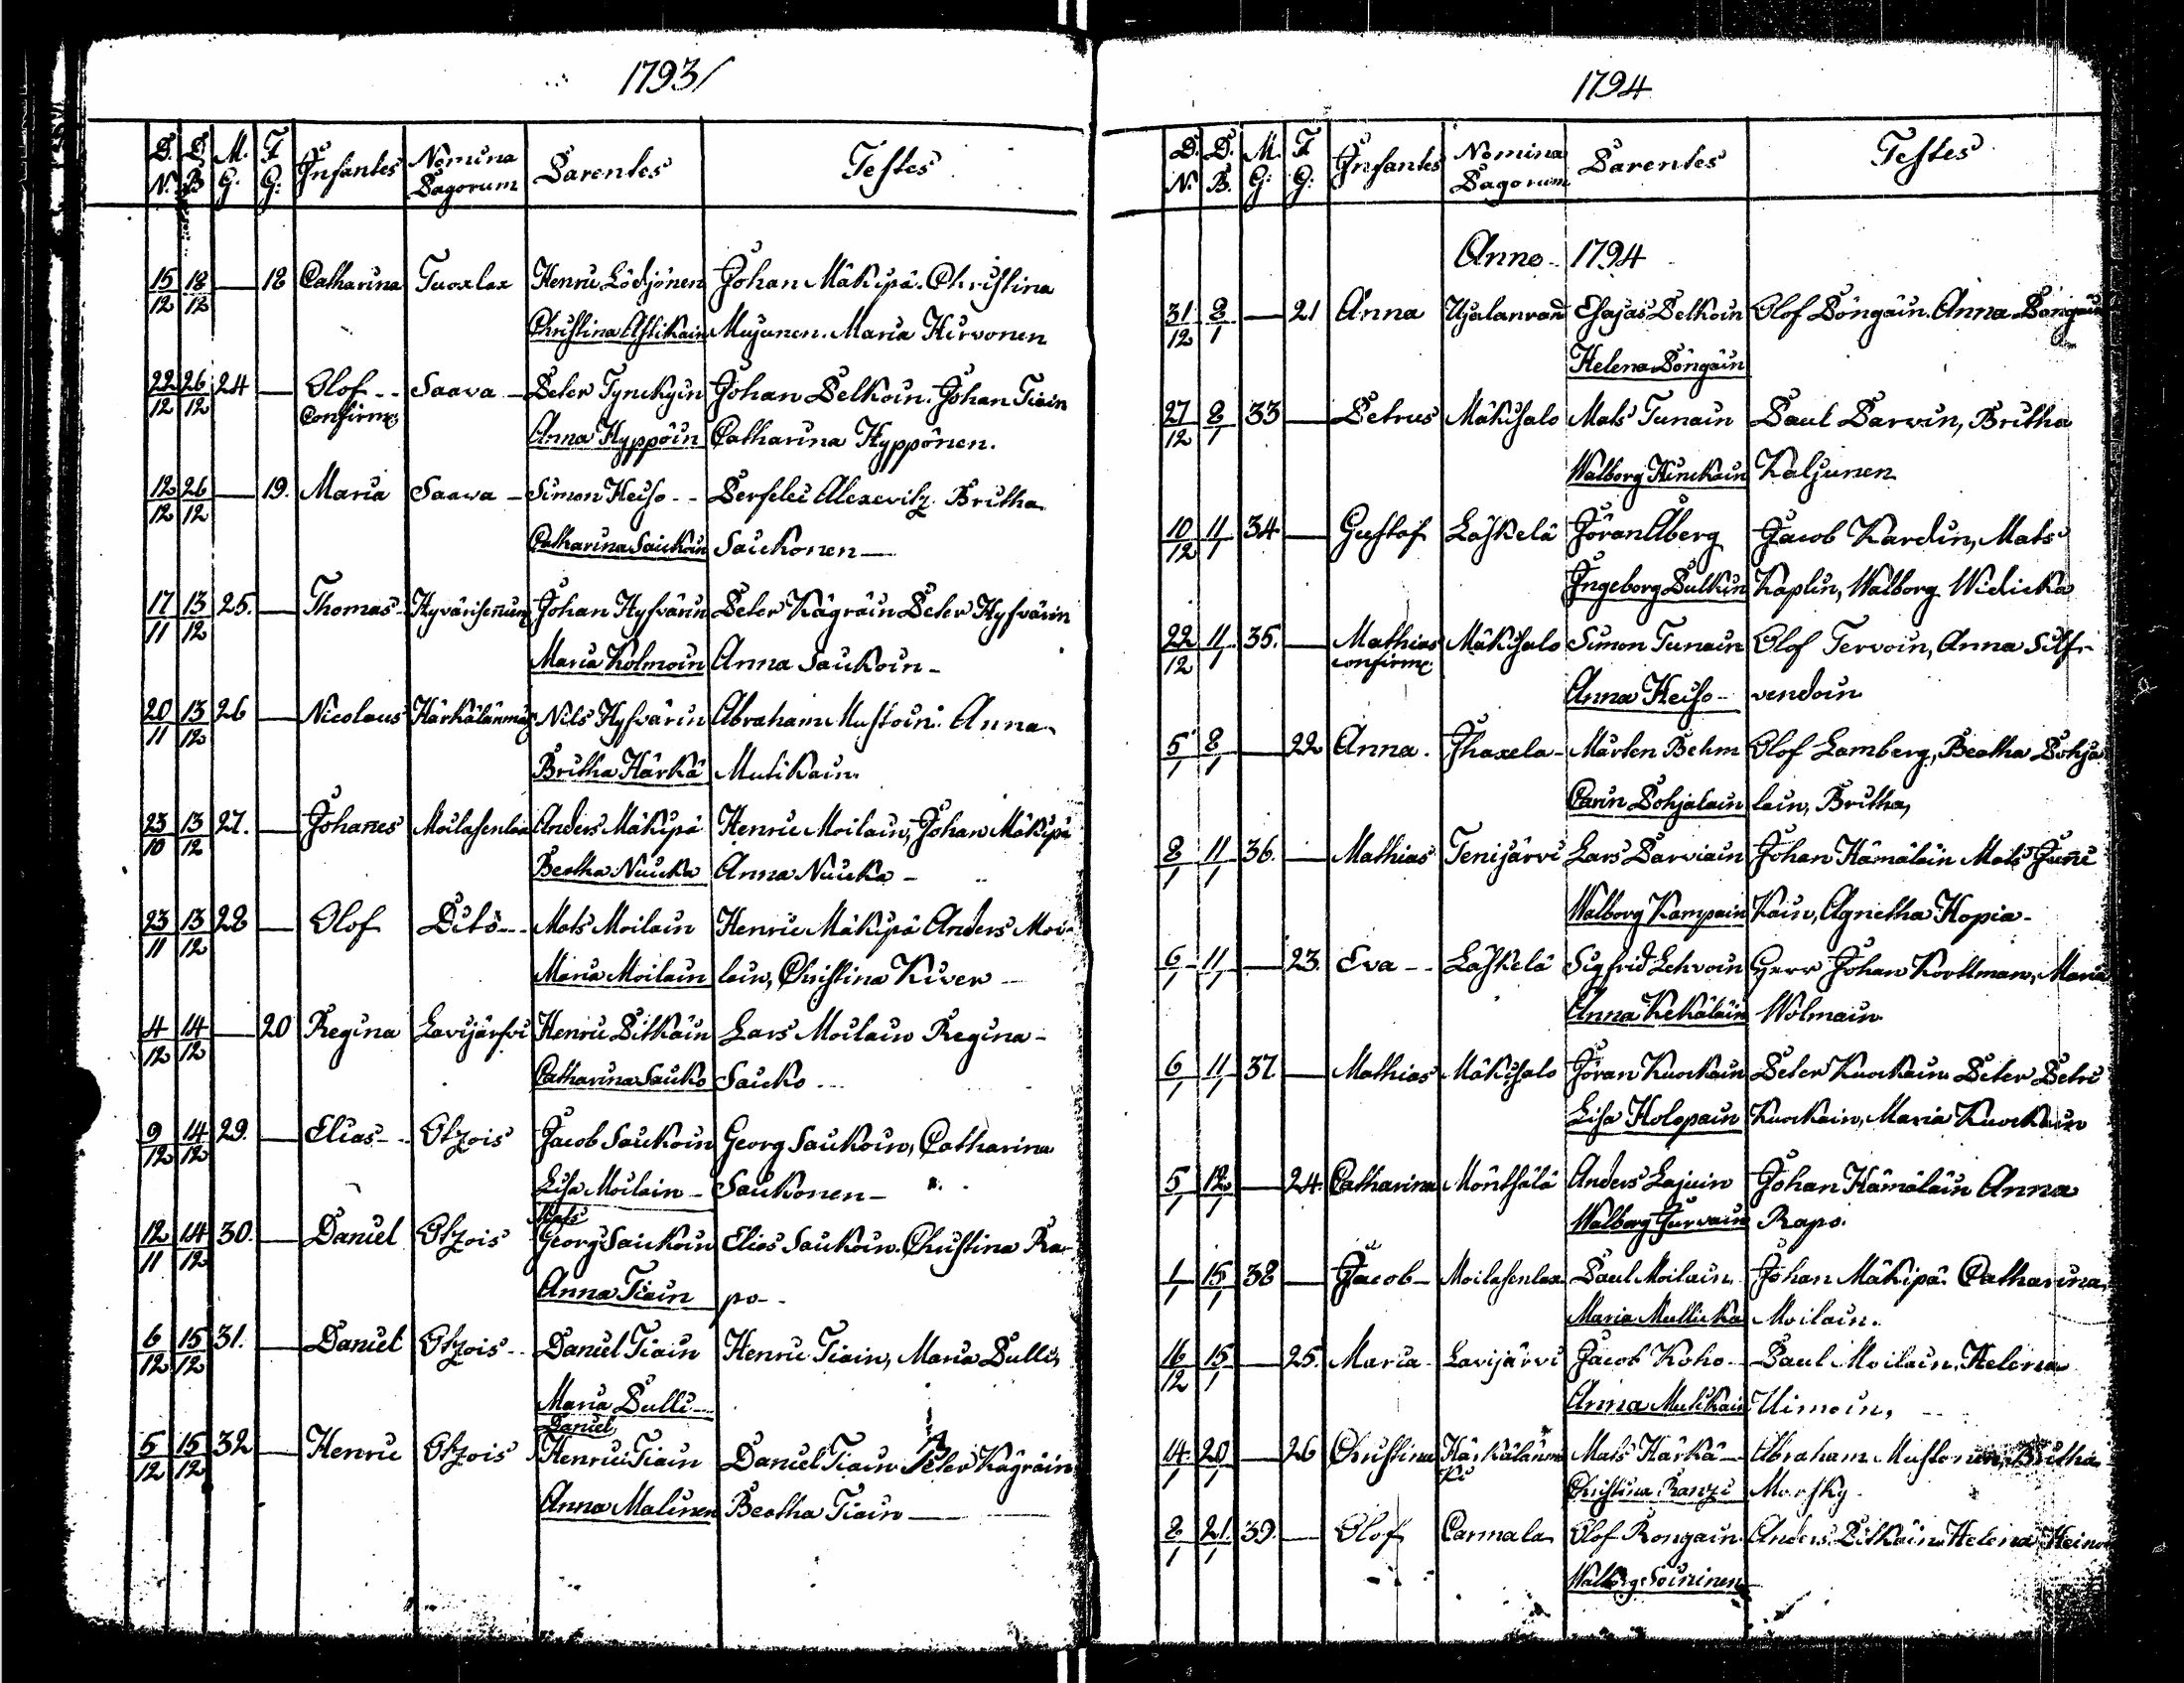 1793/
D. N. D. B. M. G. F. G. Infantes Nomina Pagorum Parentes Testes
15/12 18/12 — 18 Catharina Tuoxlax Henric Lödjönen Johan Mäkipä. Christina
Christina Astikain Mujunen. Maria Hirvonen
22/12 26/12 24 — Olof Saava Peter Tynckyin Johan Pelkoin. Johan Tiain
Confirm. Anna Hyppöin Catharina Hyppönen.
12/12 26/12 — 19. Maria Saava Simon Heiso Perfelei Alexevitz. Britha
Catharina Saickoin Saickonen
17/11 13/12 25. — Thomas Hyvärisenum Johan Hyfvärin Peter Kägräin Peter Hyfvärin
Maria Kolmoin Anna Saukoin
20/11 13/12 26 — Nicolaus Härkälänmäg Nils Hyfvärin Abraham Mustoin. Anna
Britha Härkä Mulikain
23/10 13/12 27. — Johanes Moilasenlax Anders Mäkipä Henric Moilain, Johan Mäkipä
Beatha Nuicka Anna Nuicka
23/11 13/12 28 — Olof Dito Mats Moilain Henric Mäkipä Anders Moi-
Maria Moilain lain, Christina Kiver
4/12 14/12 — 20 Regina Lavijärfvi Henric Pitkäin Lars Moilain Regina
Catharina Sauko Sauko
9/12 14/12 29. — Elias Otzois Jacob Saukoin Georg Saukoin, Catharina
Lisa Moilain Saukonen
Mats
12/11 14/12 30. — Daniel Otzois Georg Saickoin Elias Saukoin. Christina Ra-
Anna Tiain po
6/12 15/12 31. — Daniel Otzois Daniel Tiain Henric Tiain, Maria Pulli,
Maria Pulli
Daniel
5/12 15/12 32 — Henric Otzois Henric Tiain Daniel Tiain Peter Kägräin
Anna Malinen Beatha Tiain
1794
D. N. D. B. M. G: F. G: Infantes Nomina Pagorum Parentes Testes
Anno 1794
31/12 8/1 — 21 Anna Ujalanrand Esajas Pelkoin Olof Pöngäin. Anna Pöngäin
Helena Pöngäin
27/12 8/1 33 — Petrus Mäkisalo Mats Tunain Paul Parvin, Britha
Walborg Hinckain Kaljunen
10/12 11/1 34 — Gustaf Läskelä Jöran Alberg Jacob Kardin, Mats
Ingeborg Pulkin Kaplin, Walborg Widicka
22/12 11/1 35. — Mathias Mäkisalo Simon Tunain Olof Tervoin, Anna Silf-
confirm. Anna Heiso vendoin
5/1 8/1 — 22 Anna. Ihaxela Mårten Behm Olof Lamberg, Beatha Pohja
Carin Pohjalain lain, Britha,
8/1 11/1 36. — Mathias Tenijärvi Lars Parviain Johan Hämäläin Mats Juni
Walborg Kampain Kain, Agnetha Hopia
6/1 11/1 — 23. Eva Läskelä Sigfrid Lehvoin Herr Johan Kortman, Maria
Anna Kekäläin Wolmain
6/1 11/1 37 — Mathias Mäkisalo Jöran Kuockain Peter Kuockain Peter Petri
Lisa Holopain Kuockain, Maria Kuockain
5/1 12/1 — 24. Catharina Mönthälä Anders Lajuin Johan Hämäläin Anna
Walborg Jurvain Rapo.
1/1 15/1 38 — Jacob Moilasenlax Paul Moilain Johan Mäkipä. Catharina
Maria Mullicka Moilain.
16/12 15/1 — 25. Maria Lavijärvi Jacob Koho Paul Moilain, Helena
Anna Mulikain Uimoin,
14/1 20/1 — 26 Christina Härkälänmä Mats Härkä Abraham Mustonen, Britha
ki Christina Ranzi Morsky
8/1 21/1 39. — Olof Carmala Olof Rongain Anders Pitkäin Helena Heino
Walborg Soininen